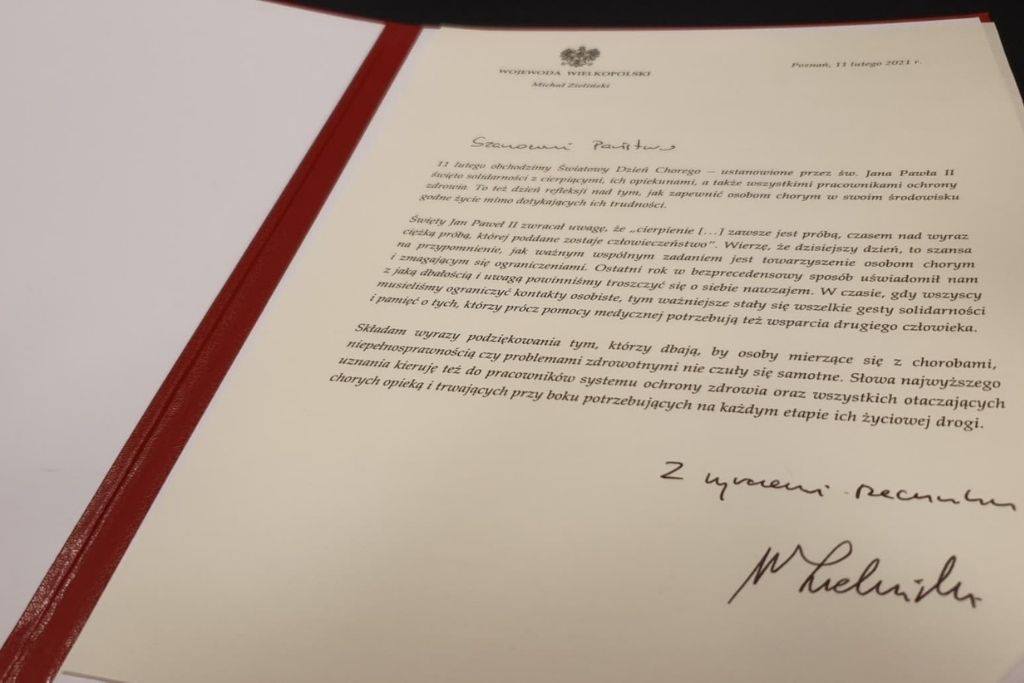 WOJEWODA WIELKOPOLSKI
Michał Zieliński
Poznań, 11 lutego 2021 r.
Szanowni Państwo
11 lutego obchodzimy Światowy Dzień Chorego – ustanowione przez św. Jana Pawła II
święto solidarności z cierpiącymi, ich opiekunami, a także wszystkimi pracownikami ochrony
zdrowia. To też dzień refleksji nad tym, jak zapewnić osobom chorym w swoim środowisku
godne życie mimo dotykających ich trudności.
Święty Jan Paweł II zwracał uwagę, że „cierpienie [...] zawsze jest próbą, czasem nad wyraz
ciężką próbą, której poddane zostaje człowieczeństwo”. Wierzę, że dzisiejszy dzień, to szansa
na przypomnienie, jak ważnym wspólnym zadaniem jest towarzyszenie osobom chorym
i zmagającym się ograniczeniami. Ostatni rok w bezprecedensowy sposób uświadomił nam
z jaką dbałością i uwagą powinniśmy troszczyć się o siebie nawzajem. W czasie, gdy wszyscy
musieliśmy ograniczyć kontakty osobiste, tym ważniejsze stały się wszelkie gesty solidarności
i pamięć o tych, którzy prócz pomocy medycznej potrzebują też wsparcia drugiego człowieka.
Składam wyrazy podziękowania tym, którzy dbają, by osoby mierzące się z chorobami,
niepełnosprawnością czy problemami zdrowotnymi nie czuły się samotne. Słowa najwyższego
uznania kieruję też do pracowników systemu ochrony zdrowia oraz wszystkich otaczających
chorych opieką i trwających przy boku potrzebujących na każdym etapie ich życiowej drogi.
Z wyrazami szacunku
M Zieliński